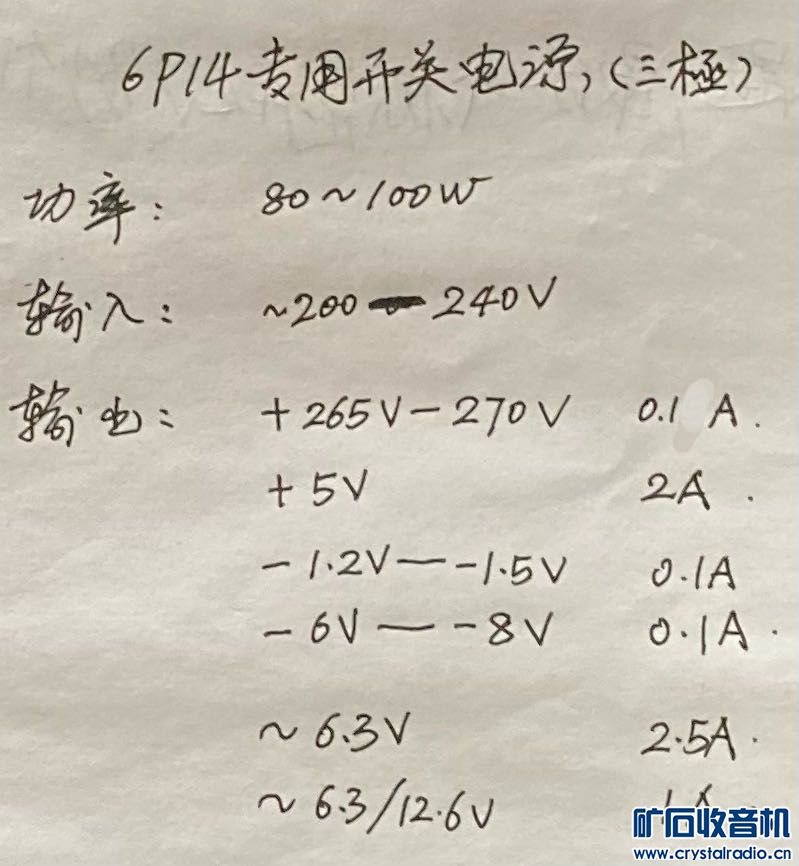 6P14专用开关电源,(三極)
功率: 80~100W
输入: ~200—240V
输出: +265V-270V 0.1 A.
+5V 2A.
-1.2V—-1.5V 0.1A
-6V—-8V 0.1A.
~6.3V 2.5A.
~6.3/12.6V 1A
矿石收音机
www.crystalradio.cn